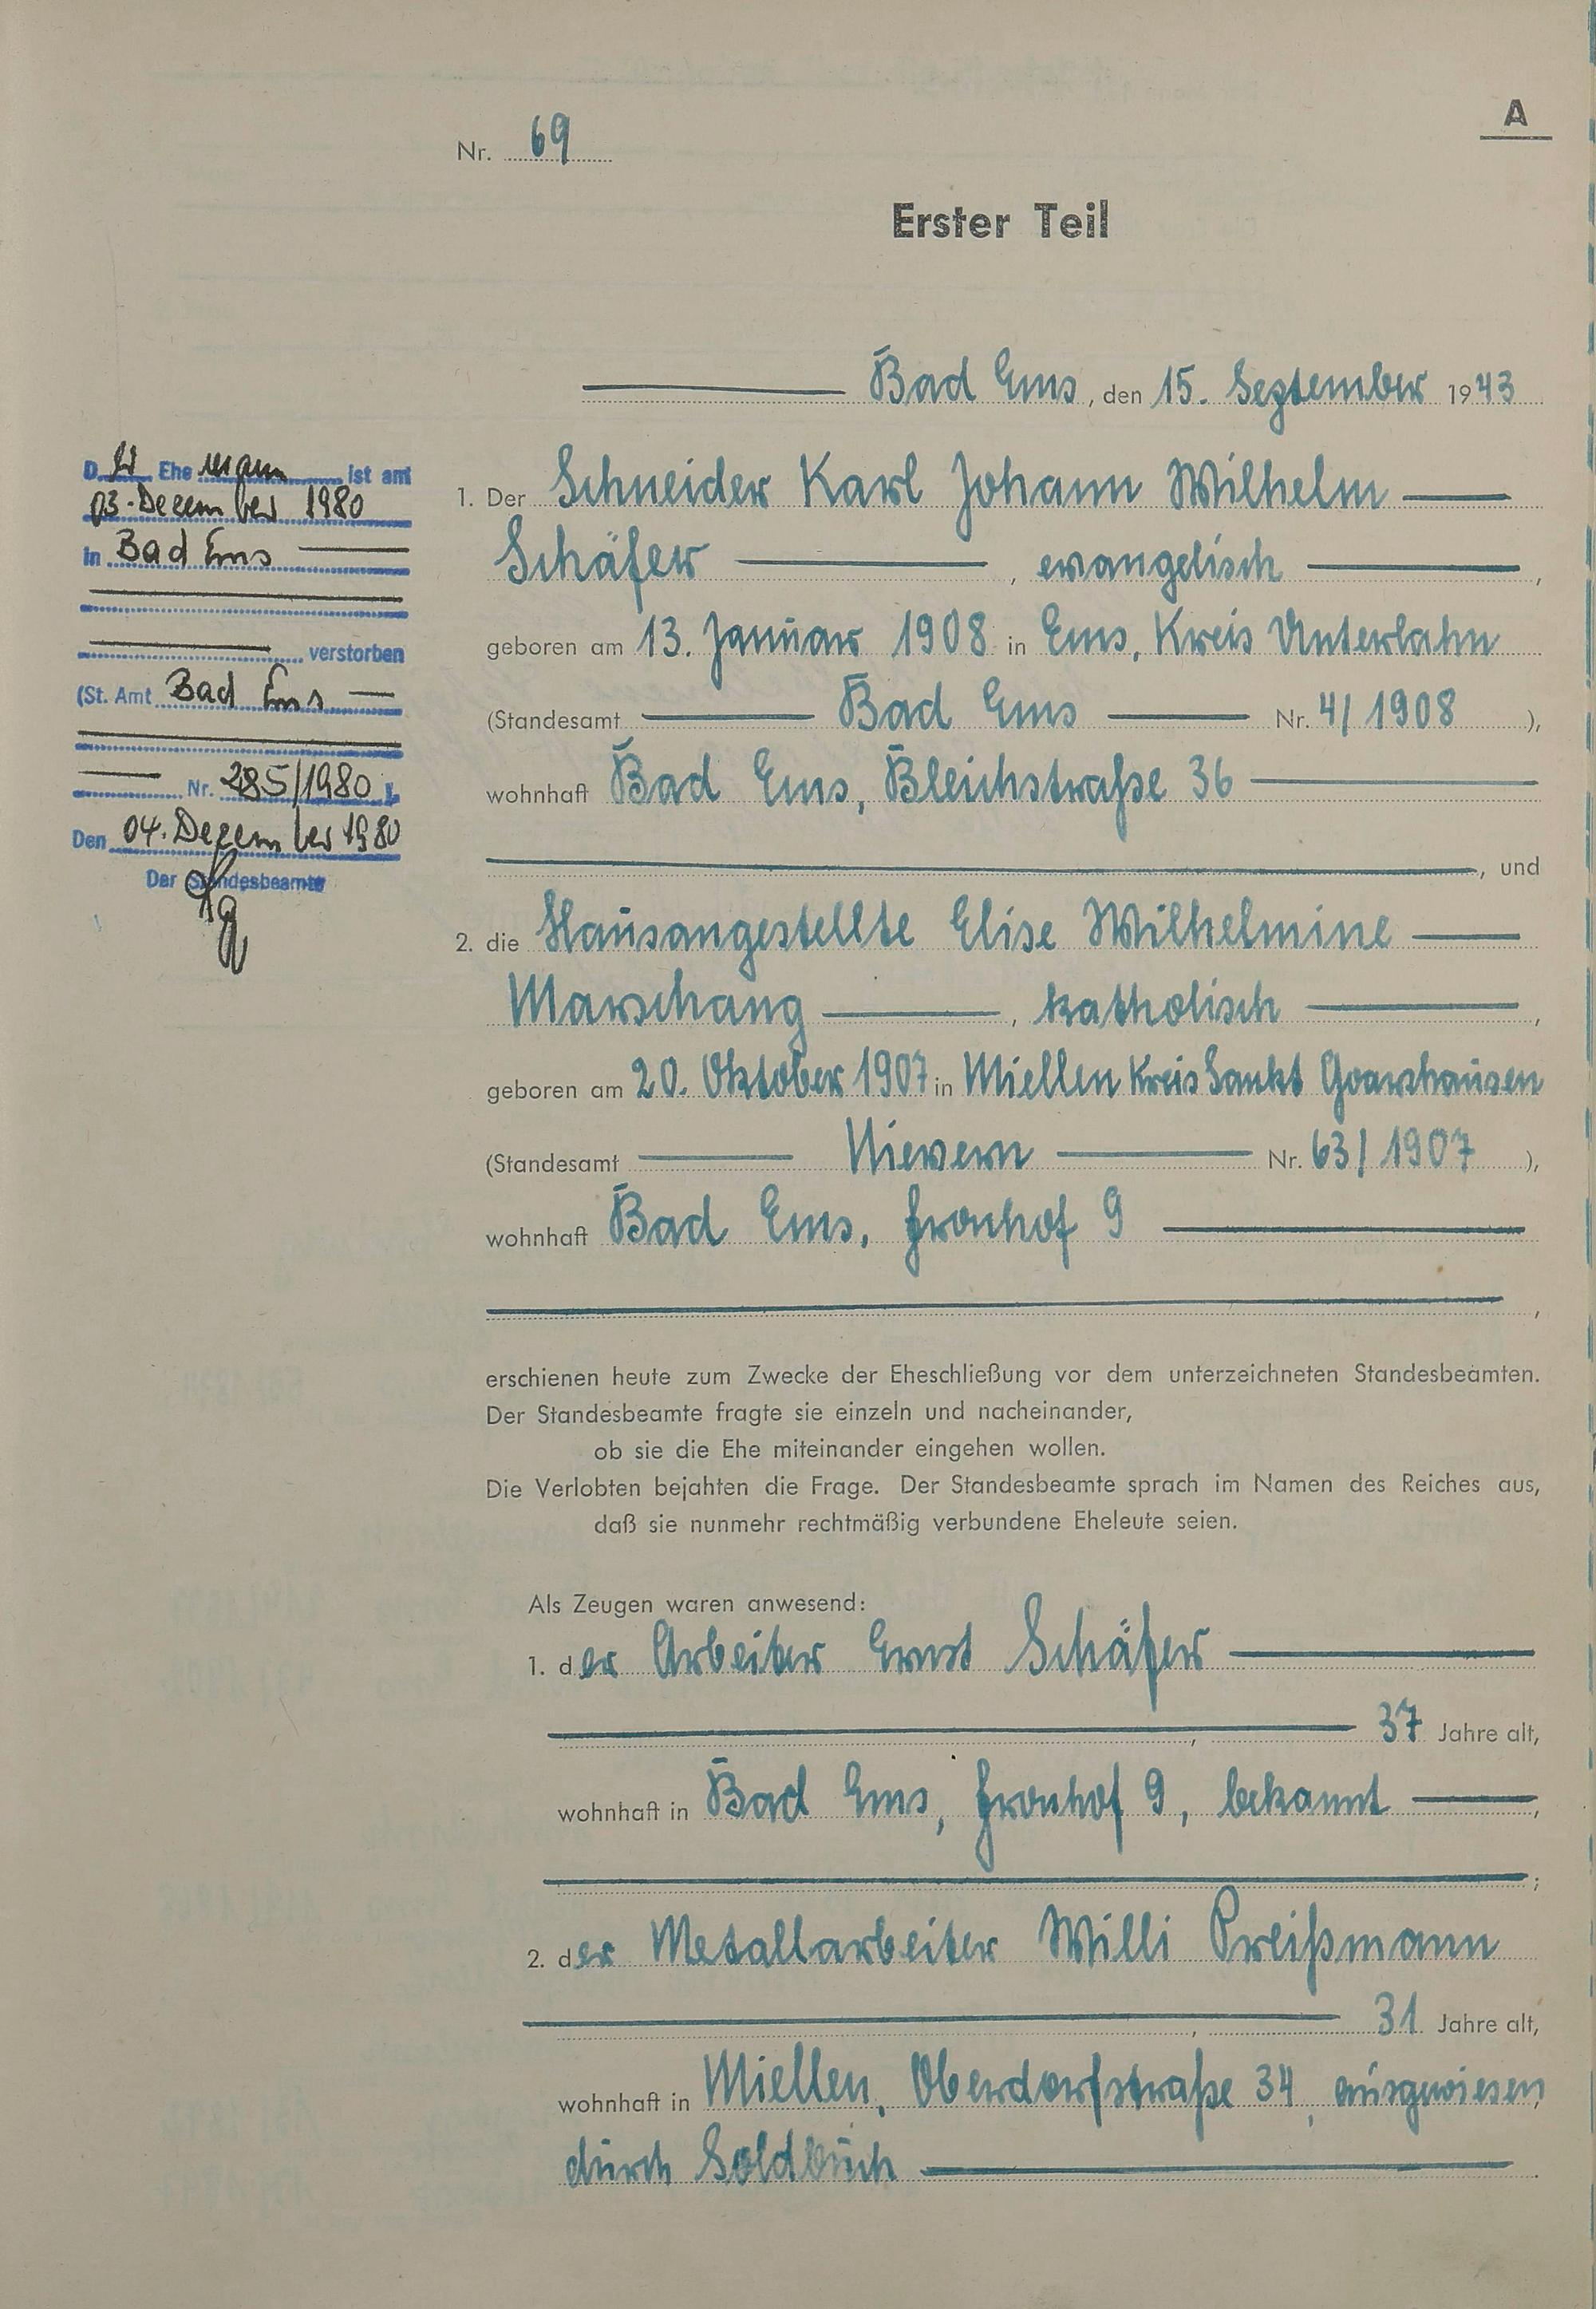 A
Nr. 69
Erster Teil
Bad Ems, den 15. September 1943
1. Der Schneider Karl Johann Wilhelm
Schäfer, evangelisch,
geboren am 13. Januar 1908 in Ems, Kreis Unterlahn
(Standesamt Bad Ems Nr. 4/1908),
wohnhaft Bad Ems, Bleichstraße 36
, und
2. die Hausangestellte Elise Wilhelmine
Marschang, katholisch,
geboren am 20. Oktober 1907 in Miellen Kreis Sankt Goarshausen
(Standesamt Nievern Nr. 63/1907),
wohnhaft Bad Ems, Fronhof 9
,
erschienen heute zum Zwecke der Eheschließung vor dem unterzeichneten Standesbeamten.
Der Standesbeamte fragte sie einzeln und nacheinander,
ob sie die Ehe miteinander eingehen wollen.
Die Verlobten bejahten die Frage. Der Standesbeamte sprach im Namen des Reiches aus,
daß sie nunmehr rechtmäßig verbundene Eheleute seien.
Als Zeugen waren anwesend:
1. der Arbeiter Ernst Schäfer
, 37 Jahre alt,
wohnhaft in Bad Ems, Fronhof 9, bekannt,
;
2. der Metallarbeiter Willi Preißmann
, 31 Jahre alt,
wohnhaft in Miellen, Oberdorfstraße 34, ausgewiesen,
durch Soldbuch.
Der Ehemann ist am
03. Dezember 1980
in Bad Ems
verstorben
(St. Amt Bad Ems
Nr. 285/1980).
Den 04. Dezember 1980
Der Standesbeamte